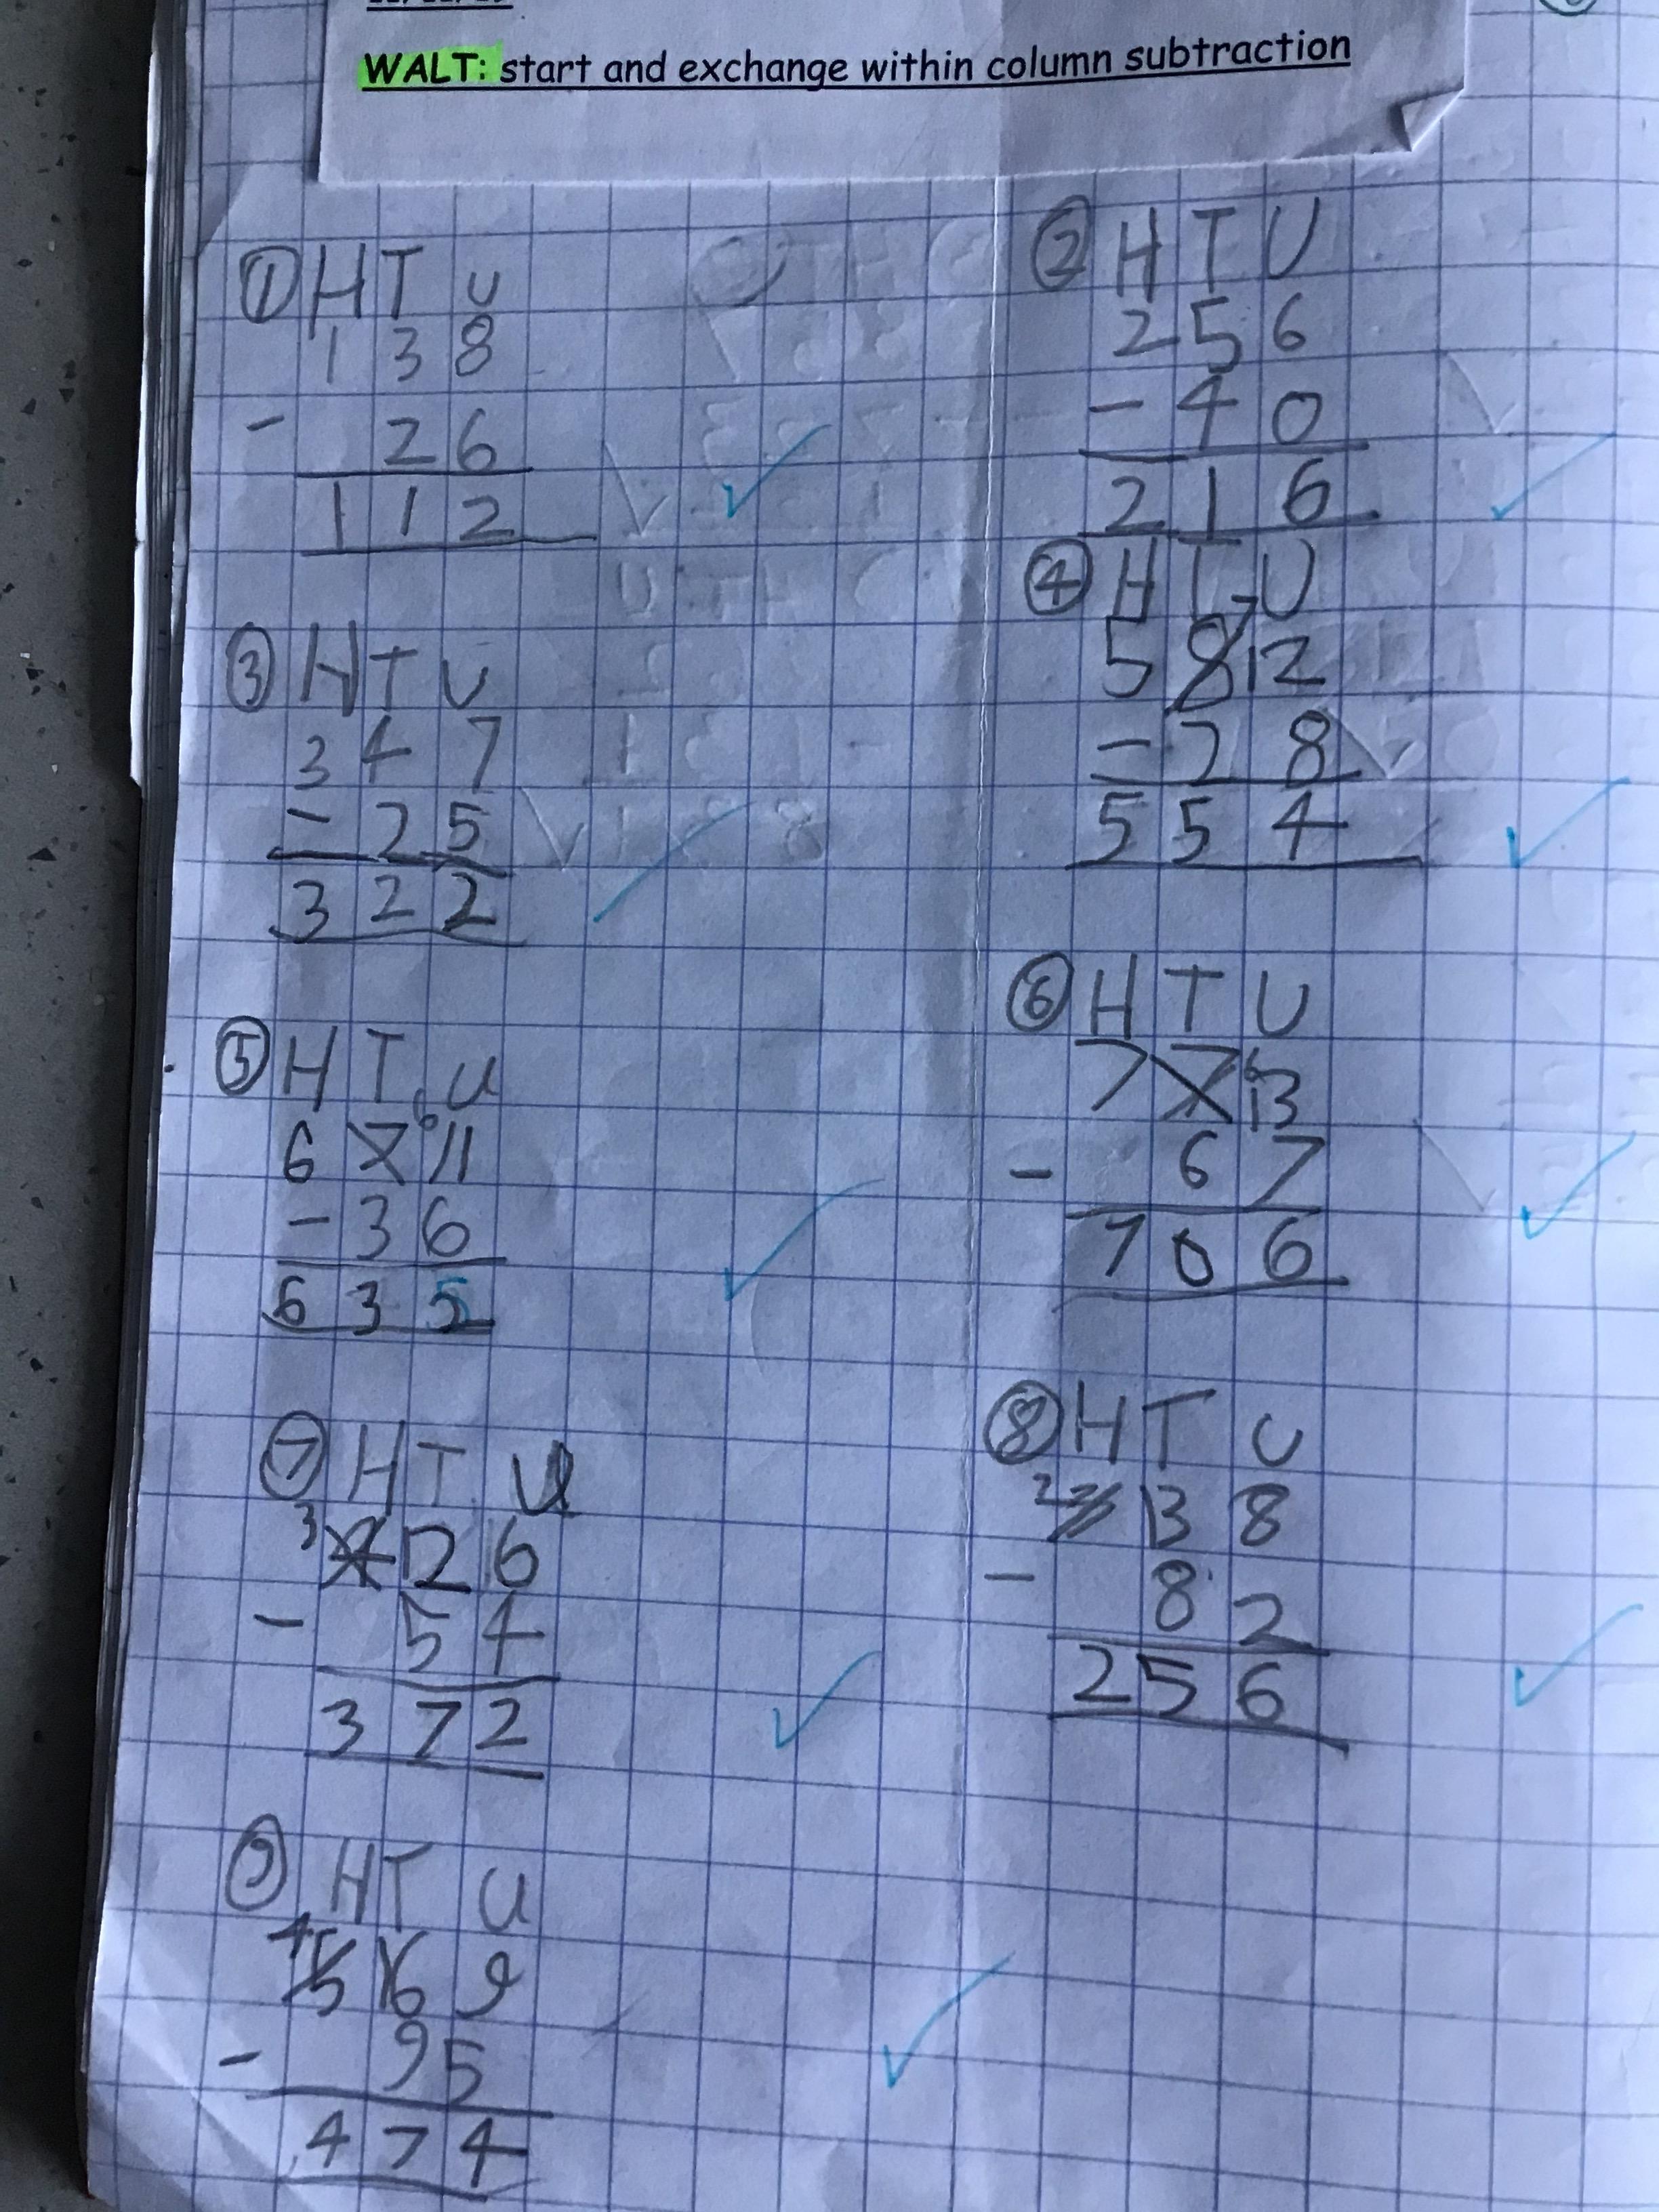 WALT: start and exchange within column subtraction
① H T U
1 3 8
- 2 6
1 1 2
② H T U
2 5 6
- 4 0
2 1 6
③ H T U
3 4 7
- 2 5
3 2 2
④ H T U
7
5 8 12
- 2 8
5 5 4
⑤ H T U
6
6 7 11
- 3 6
6 3 5
⑥ H T U
6
7 7 13
- 6 7
7 0 6
⑦ H T U
3
4 12 6
- 5 4
3 7 2
⑧ H T U
2 3 13 8
- 8 2
2 5 6
⑨ H T U
4
5 16 9
- 9 5
4 7 4